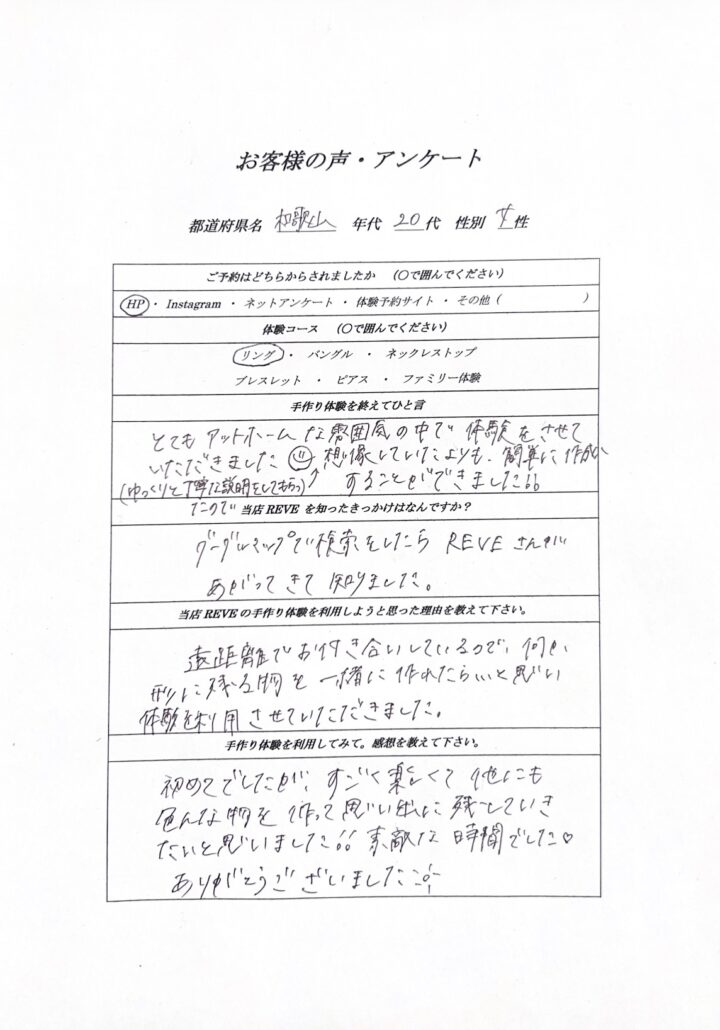 お客様の声・アンケート
都道府県名 和歌山 年代 20代 性別 女性
ご予約はどちらからされましたか （〇で囲んでください）
HP ・ Instagram ・ ネットアンケート ・ 体験予約サイト ・ その他（ ）
体験コース （〇で囲んでください）
リング ・ バングル ・ ネックレストップ
ブレスレット ・ ピアス ・ ファミリー体験
手作り体験を終えてひと言
とても アットホームな雰囲気の中で 体験をさせて
いただきました 想像していたよりも、簡単に作成
(ゆっくりと丁寧な説明をしてもらっ) することができました!!
たので
当店 REVE を知ったきっかけはなんですか？
グーグルマップで検索をしたら REVE さんが
あがってきて 知りました。
当店 REVE の手作り体験を利用しようと思った理由を教えて下さい。
遠距離でお付き合いしているので、何か
形に残る物を 一緒に作れたらいいと思い
体験を利用させていただきました。
手作り体験を利用してみて。感想を教えて下さい。
初めてでしたが、すごく楽しくて 他にも
色んな物を 作って思い出に残していき
たいと思いました!! 素敵な時間でした♡
ありがとうございました